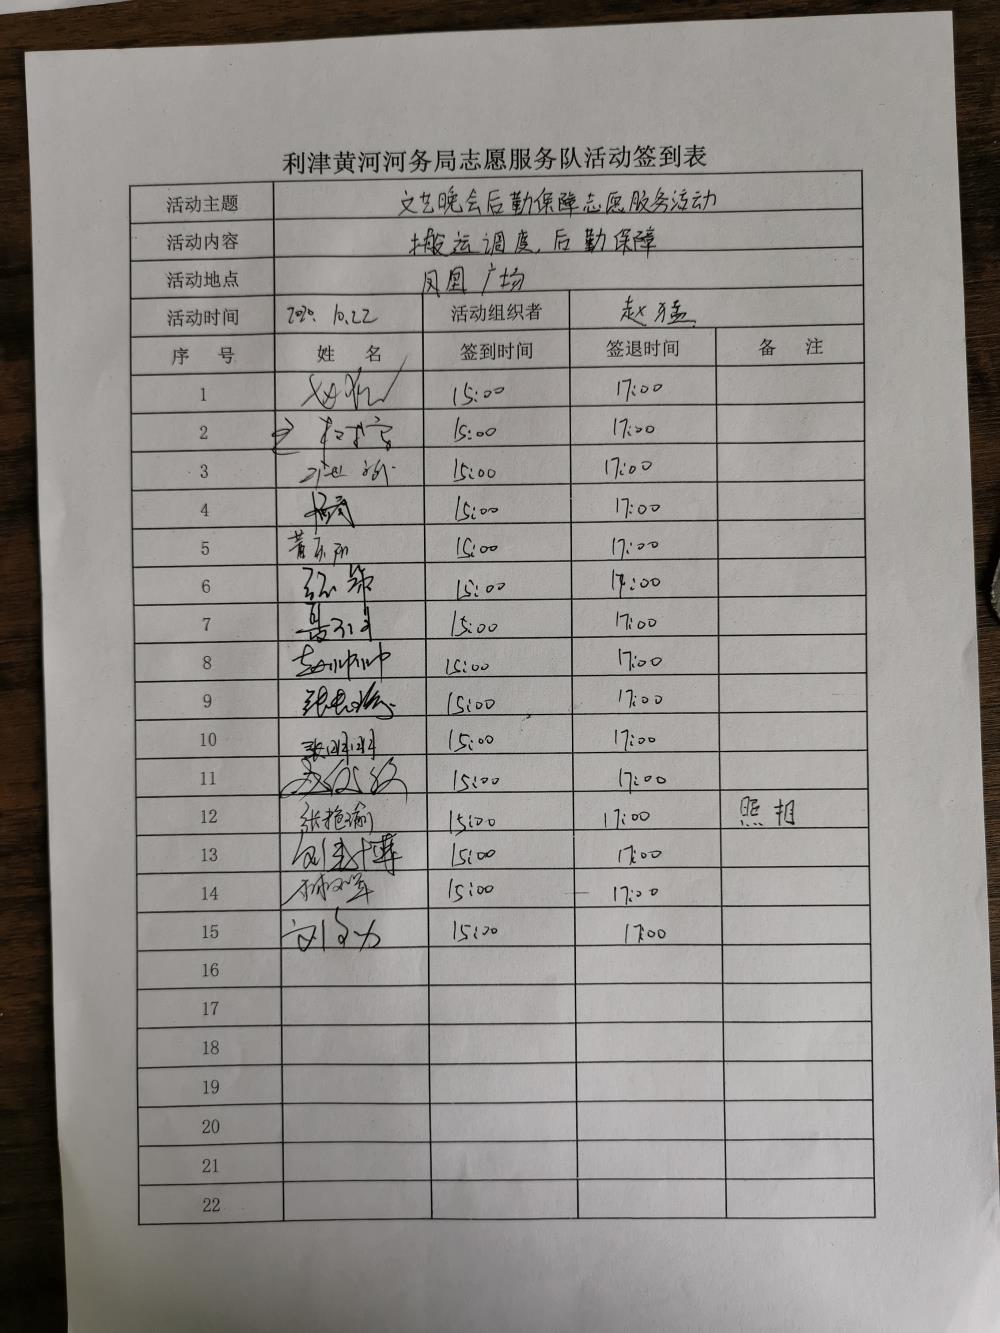 利津黄河河务局志愿服务队活动签到表
活动主题 文艺晚会后勤保障志愿服务活动
活动内容 搬运调度,后勤保障
活动地点 凤凰广场
活动时间 2020.10.22 活动组织者 赵猛
序号 姓名 签到时间 签退时间 备注
1 15:00 17:00
2 15:00 17:00
3 15:00 17:00
4 15:00 17:00
5 15:00 17:00
6 15:00 17:00
7 15:00 17:00
8 赵帅帅 15:00 17:00
9 15:00 17:00
10 张珊珊 15:00 17:00
11 15:00 17:00
12 张艳瑜 15:00 17:00 照相
13 15:00 17:00
14 15:00 17:00
15 15:00 17:00
16
17
18
19
20
21
22